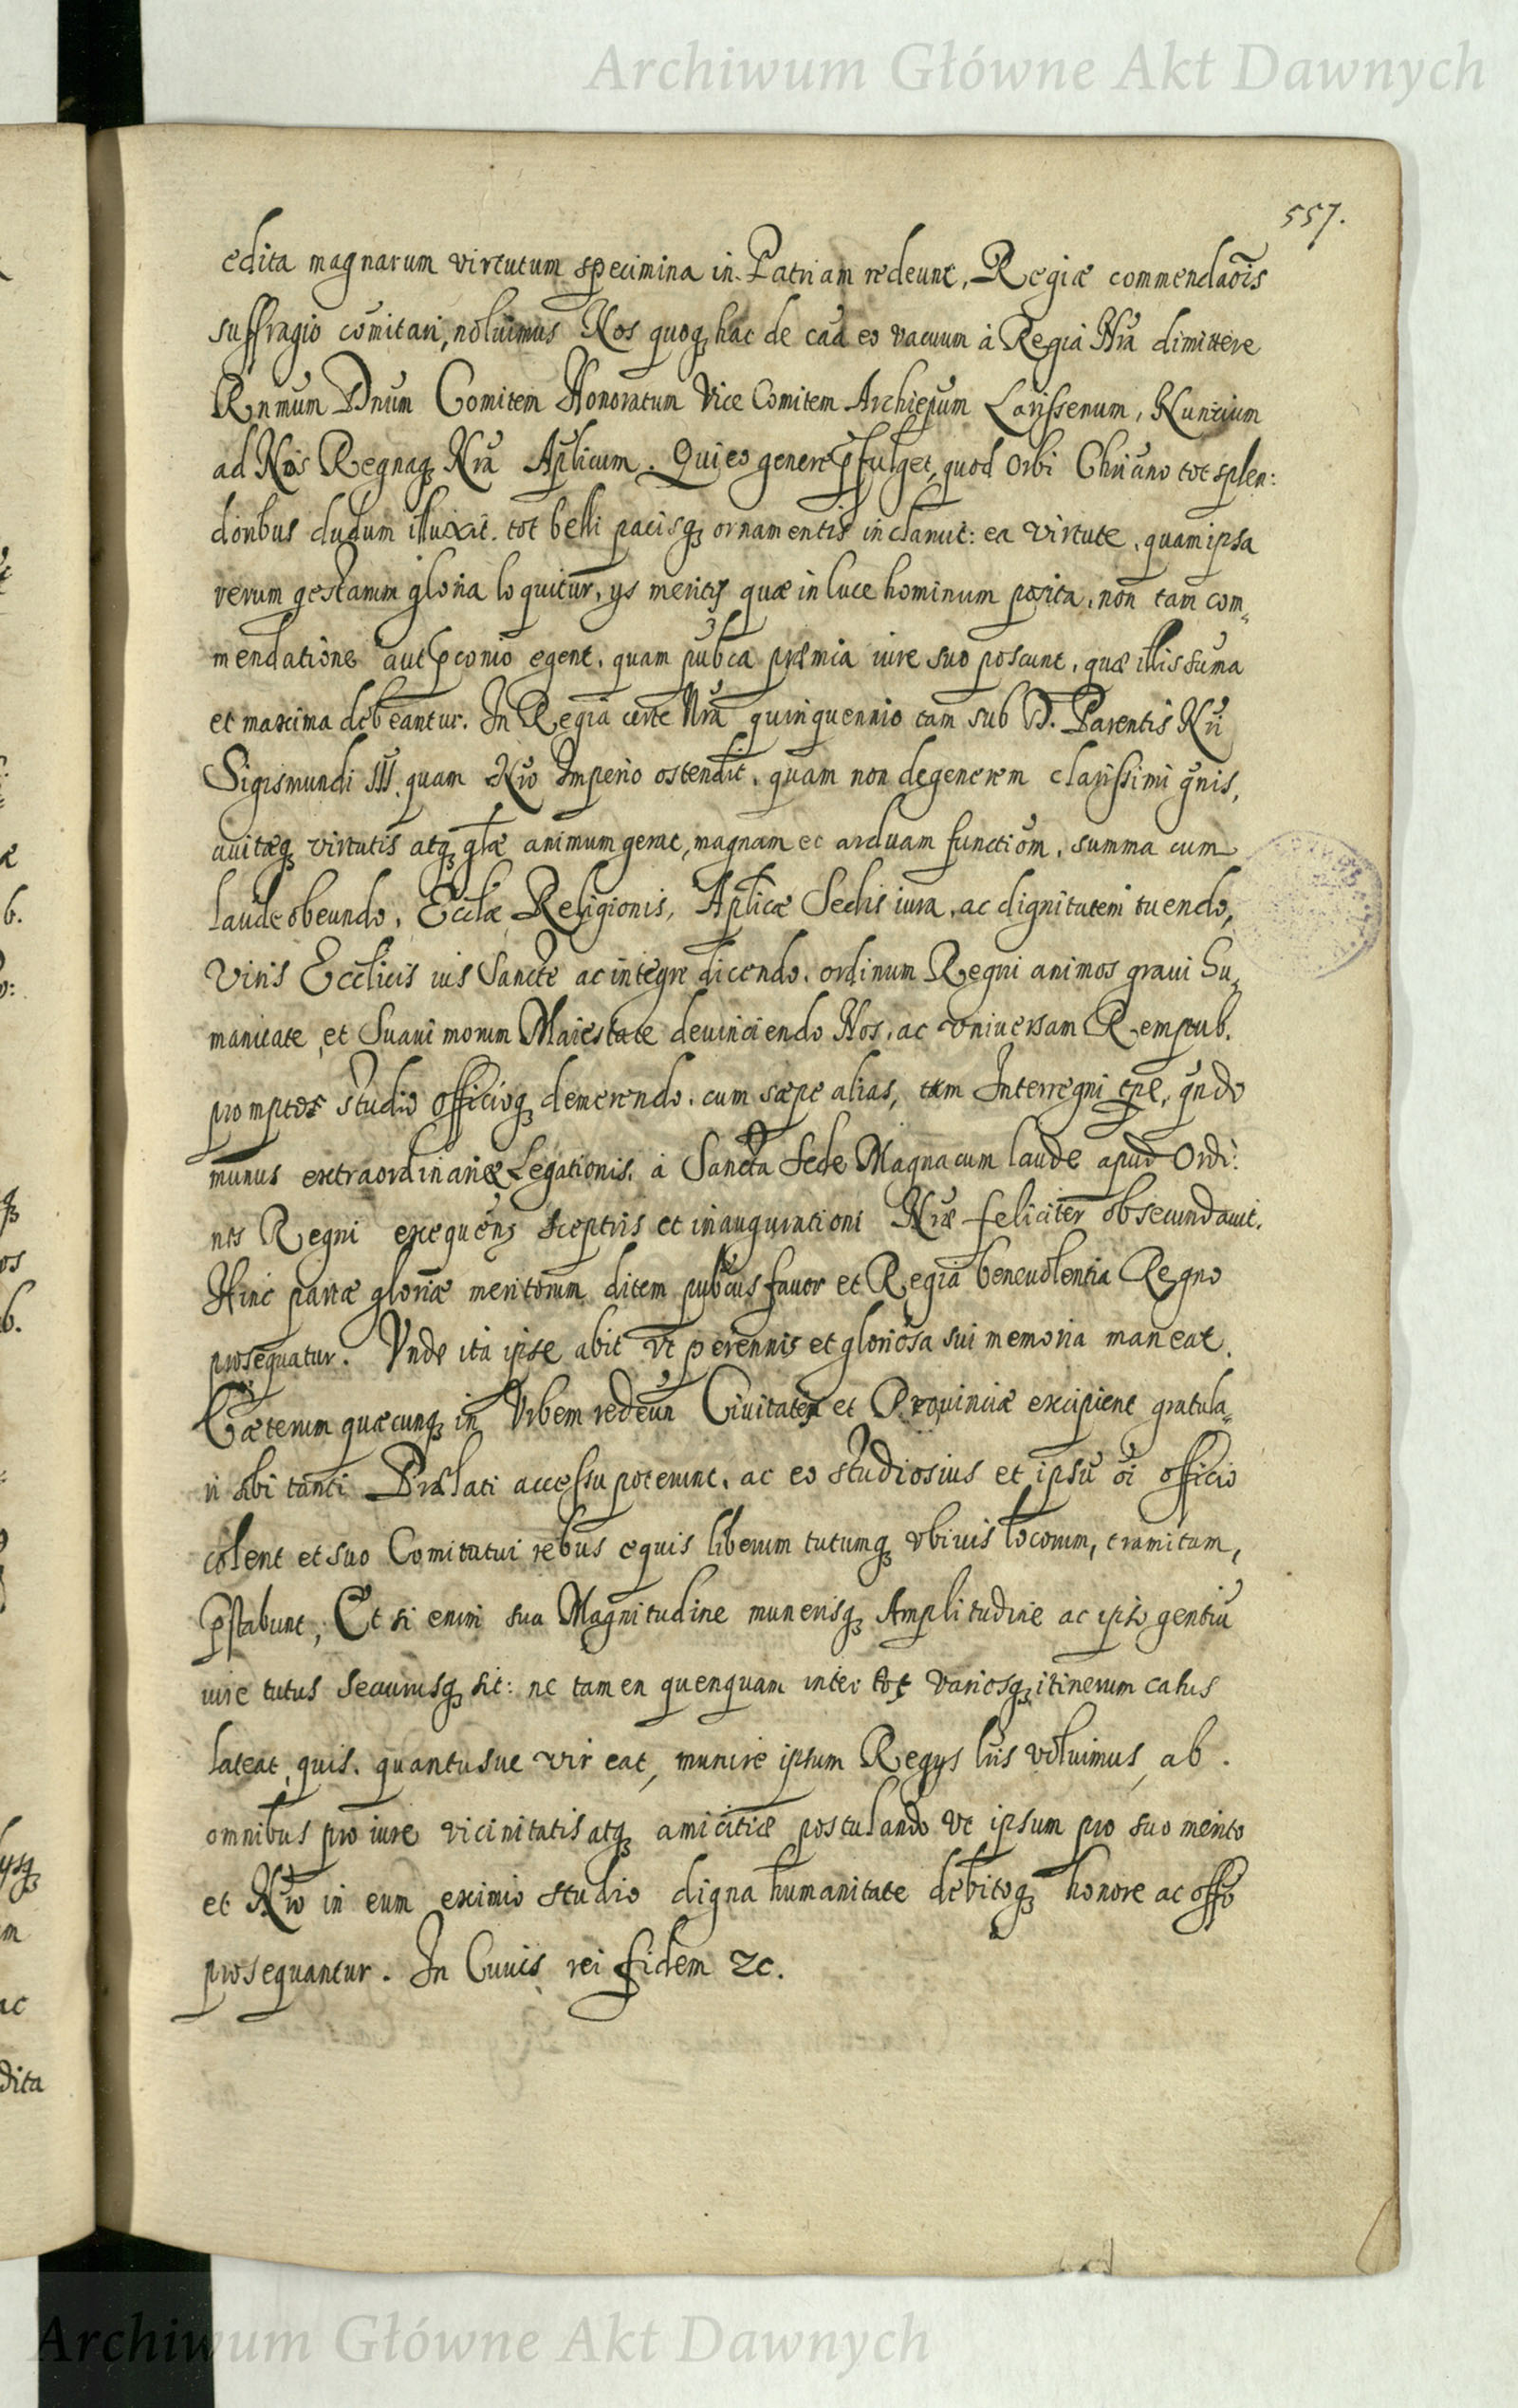 Archiwum Główne Akt Dawnych
557.
edita magnarum virtutum specimina in Patriam redeunt, Regiæ commendaõis
suffragio comitari, noluimus Nos quoq3 hac de caũ eo vacuum à Regiâ Nr̃a dimittere
Rnmum Dnum Comitem Honoratum Vice Comitem Archiepũm Larissenum, Nuntium
ad Nos Regnaq3 Nr̃a Aplicum. Qui eo genere p̃fulget, quod Orbi Chriano tot splen:
doribus dudum illuxit. tot belli pacisq3 ornamentis inclaruit: ea virtute, quam ipsa
rerum gestarum gloria loquitur, ys meritis quæ in luce hominum posita, non tam com„
mendatione aut p̃conio egent, quam pubca præmia iure suo poscunt, quæ illis suma
et maxima debeantur. In Regia certe Nrã quinquennio tam sub D. Parentis Nri
Sigismundi III. quam Nrõ Imperio ostendit, quam non degenerem clarissimi gñis,
auitæq3 virtutis atq3 glæ animum gerat, magnam et arduam functiõm, summa cum
laude obeundo, Ecclæ Religionis, Aplicæ Sedis iura, ac dignitatem tuendo,
Viris Ecclicis ius Sancte ac integre dicendo. ordinum Regni animos graui hu„
manitate, et Suaui morum Maiestate deuinciendo Nos, ac vniuersam Rempub.
promptos studio officioq3 demerendo. cum sæpe alias, tum Interregni tpẽ, qñdo
munus extraordinariæ Legationis, à Sancta Sede Magna cum laude apud Ordi:
nes Regni exequens sceptris et inaugurationi Nræ feliciter obsecundauit.
Hinc partæ gloriæ meritorum ditem pubcus fauor et Regia beneuolentia Regno
prosequatur. Vnde ita ipse abit vt perennis et gloriosa sui memoria maneat.
Cæterum quæcunq3 in Vrbem redeun Ciuitates et Prouinciæ excipient gratula„
ri sibi tanti Prælati accessu poterunt, ac eo studiosius et ipsũ oĩ officio
colent et suo Comitatui rebus equis liberum tutumq3 vbiuis locorum, tramitum,
p̃stabunt, Et si enim sua Magnitudine munerisq3 Amplitudine ac ipso gentiũ
iure tutus securusq3 sit: ne tamen quenquam inter tot variosq3 itinerum casus
lateat, quis, quantusue vir eat, munire ipsum Regys lris voluimus, ab
omnibus pro iure vicinitatis atq3 amicitiæ postulando vt ipsum pro suo merito
et Nrõ in eum eximio studio digna humanitate debitoq3 honore ac offõ
prosequantur. In Cuius rei fidem &c.
Archiwum Główne Akt Dawnych